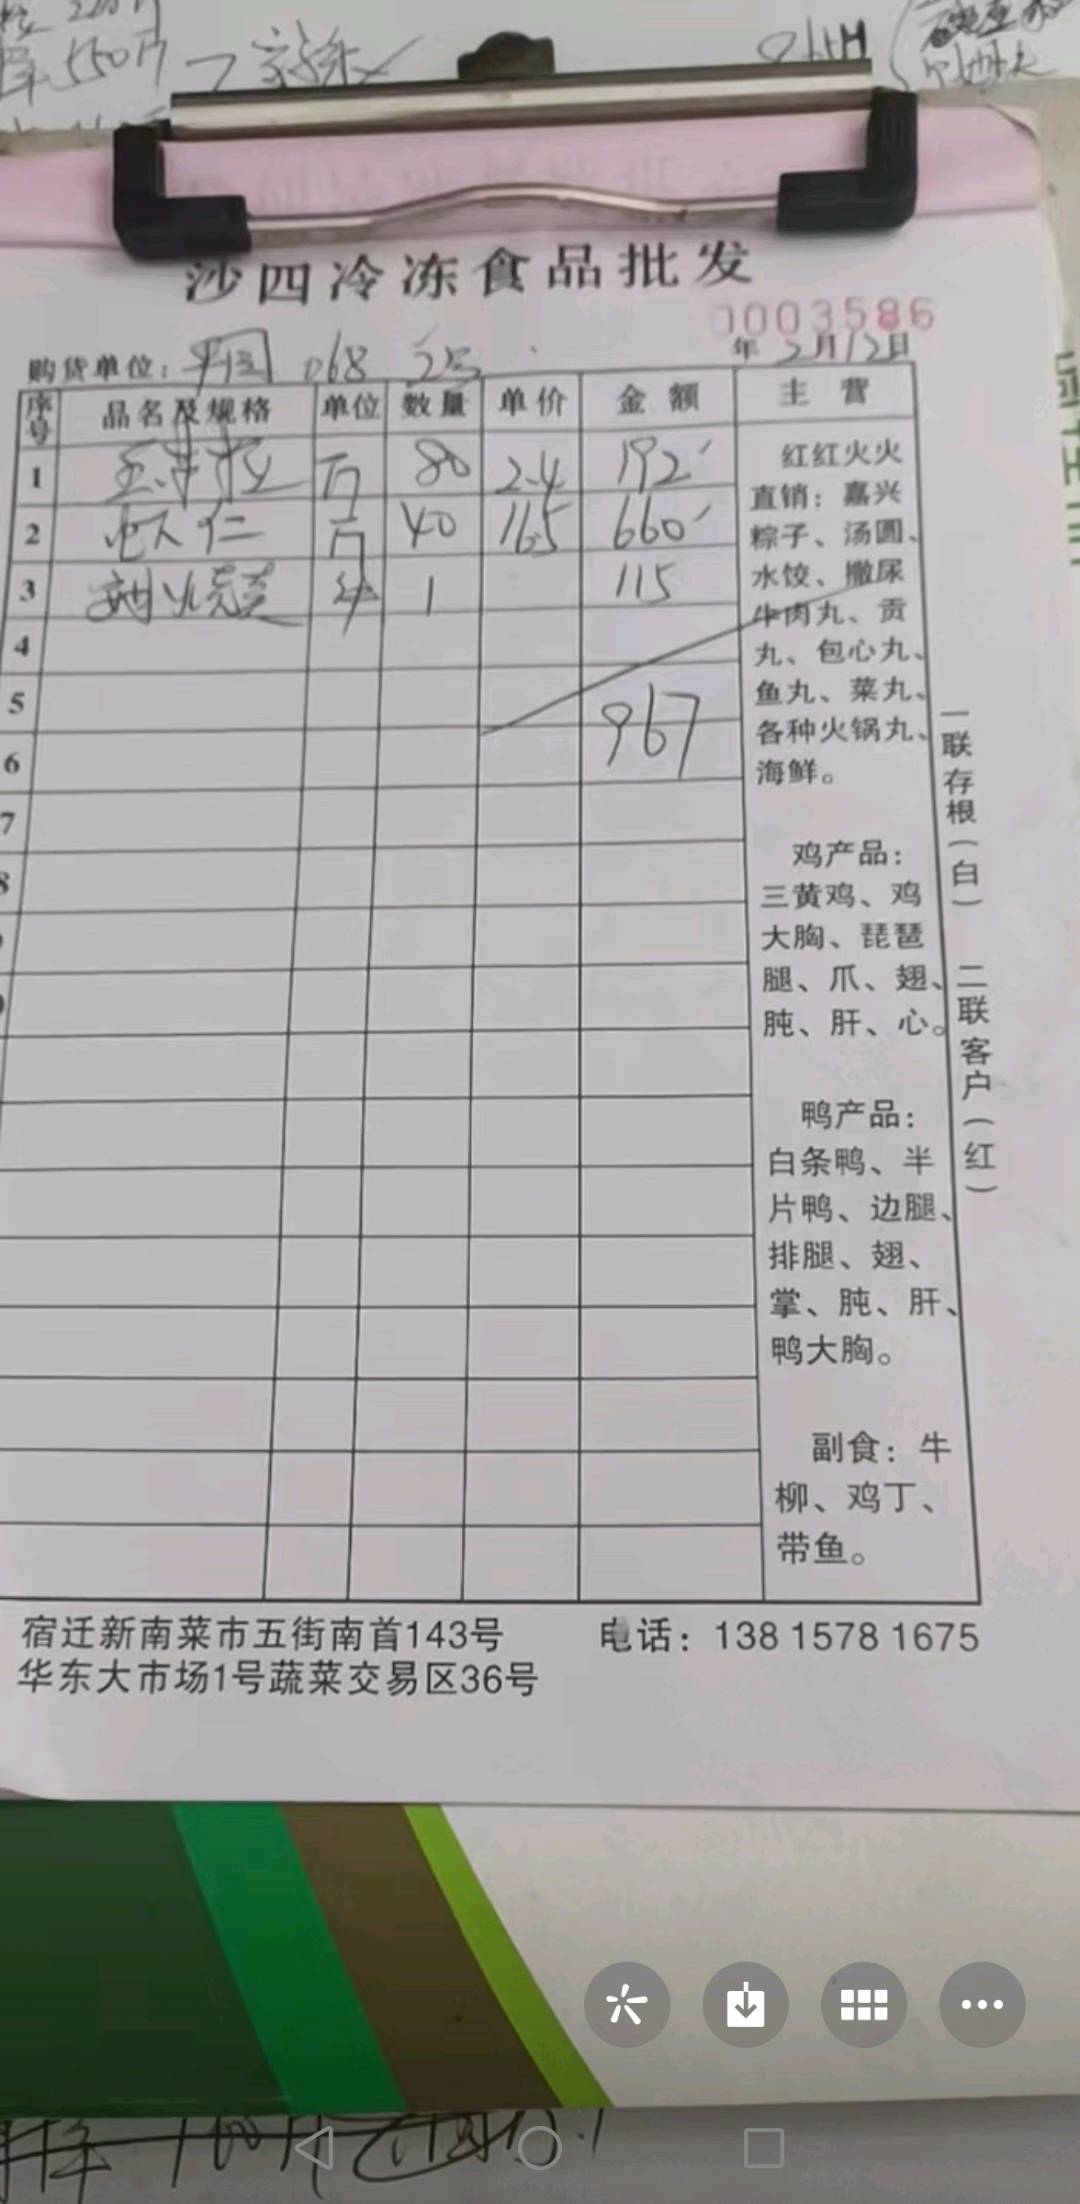 550斤
沙四冷冻食品批发
0003586
购货单位: 068 25 年 2月12日
序号 品名及规格 单位 数量 单价 金额 主营
1 斤 80 2.4 192
2 虾仁 斤 40 16.5 660
3 1 115
4
5
6 967
7
红红火火
直销：嘉兴
粽子、汤圆、
水饺、撒尿
牛肉丸、贡
丸、包心丸、
鱼丸、菜丸、
各种火锅丸、
海鲜。
鸡产品：
三黄鸡、鸡
大胸、琵琶
腿、爪、翅、
肫、肝、心。
鸭产品：
白条鸭、半
片鸭、边腿、
排腿、翅、
掌、肫、肝、
鸭大胸。
副食：牛
柳、鸡丁、
带鱼。
一联存根(白) 二联客户(红)
宿迁新南菜市五街南首143号 电话：138 1578 1675
华东大市场1号蔬菜交易区36号